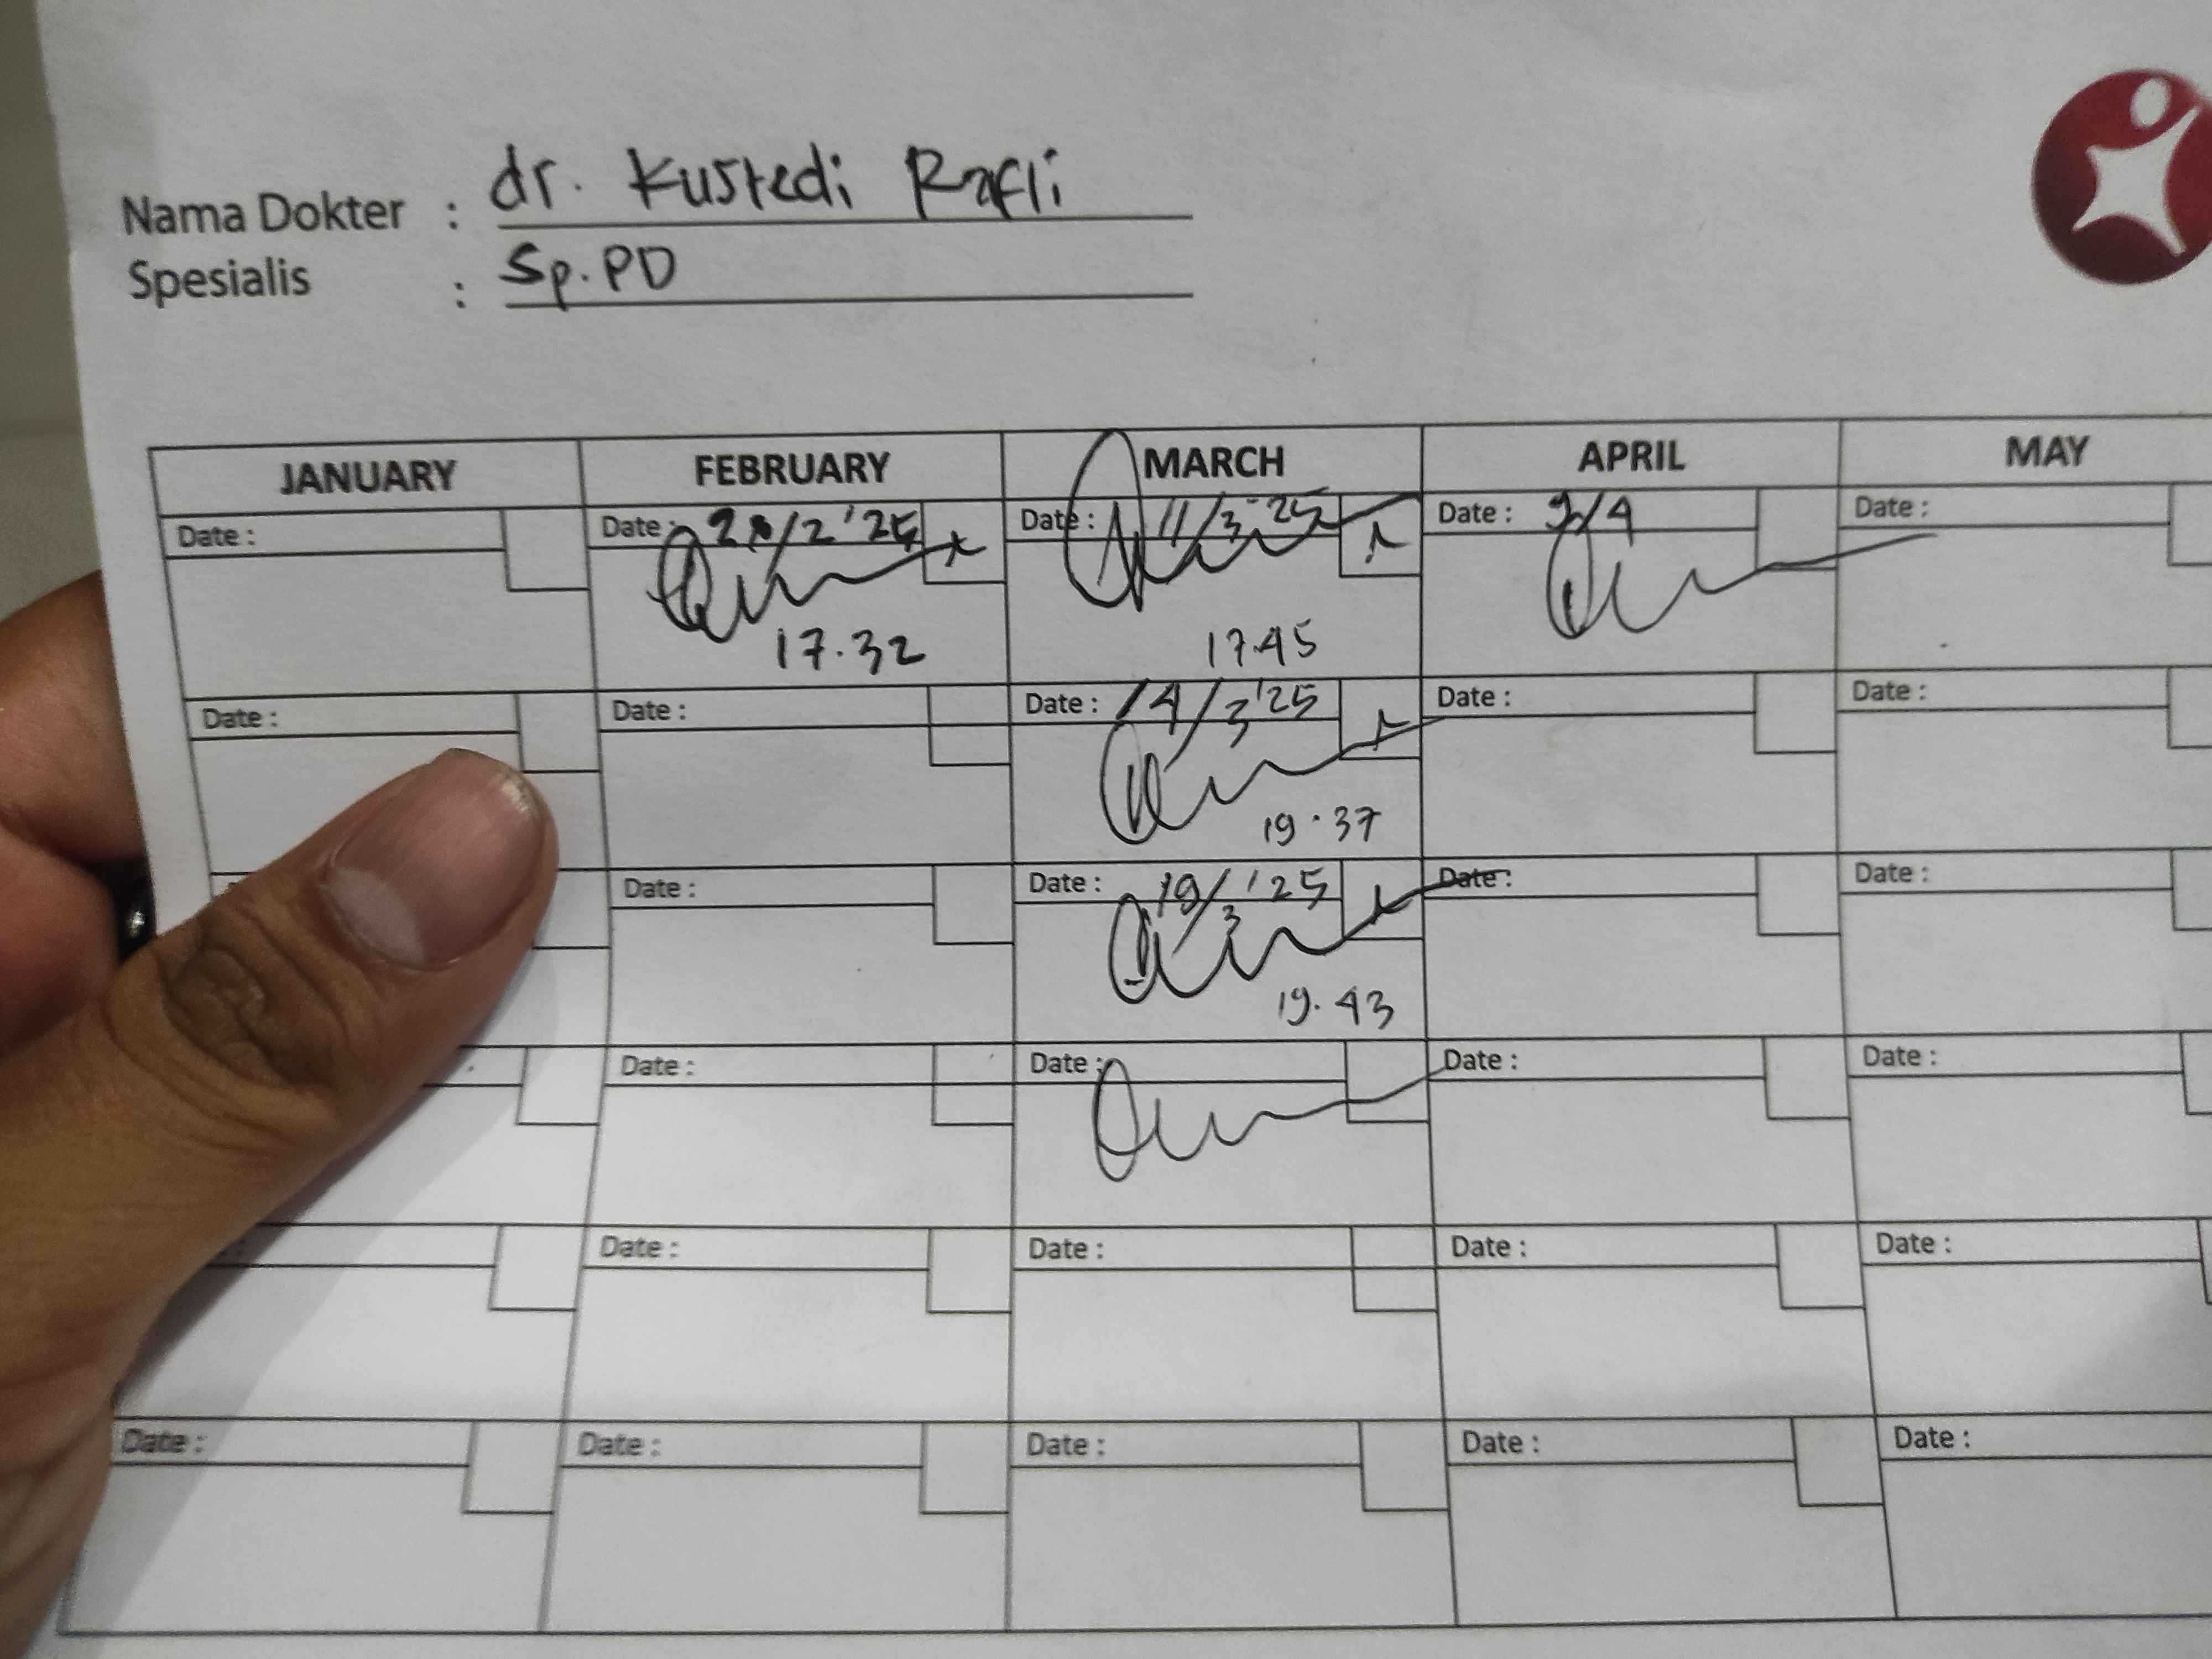 Nama Dokter : dr. Kustedi Rafli
Spesialis : Sp.PD
JANUARY FEBRUARY MARCH APRIL MAY
Date : Date : /2 '25 Date : 11/3-25 Date : /4 Date :
17.32 17.45
Date : Date : Date : 14/3'25 Date : Date :
19.37
Date : Date : 19/3 '25 Date : Date :
19.43
Date : Date : Date : Date :
Date : Date : Date : Date :
Date : Date : Date : Date : Date :